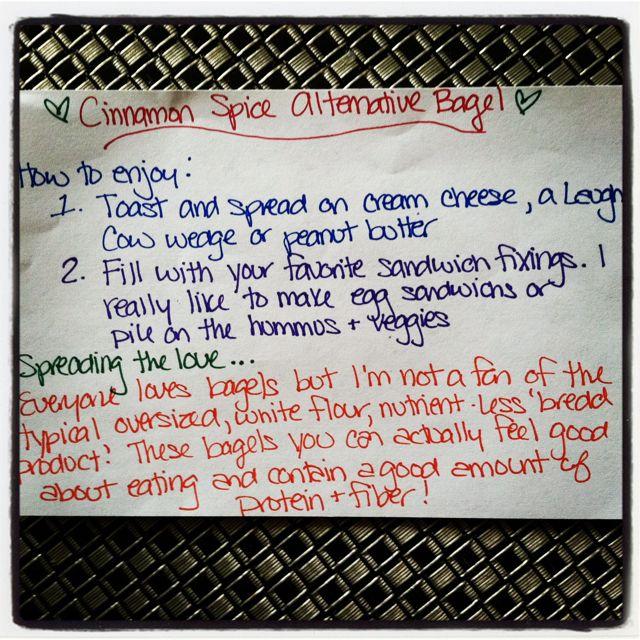 Cinnamon Spice Alternative Bagel
How to enjoy:
1. Toast and spread on cream cheese, a Laugh
Cow wedge or peanut butter
2. Fill with your favorite sandwich fixings. I
really like to make egg sandwichs or
pile on the hummos + veggies
Spreading the love...
Everyone loves bagels but I'm not a fan of the
typical oversized, white flour, nutrient-less 'bread
product.' These bagels you can actually feel good
about eating and contain a good amount of
protein + fiber!